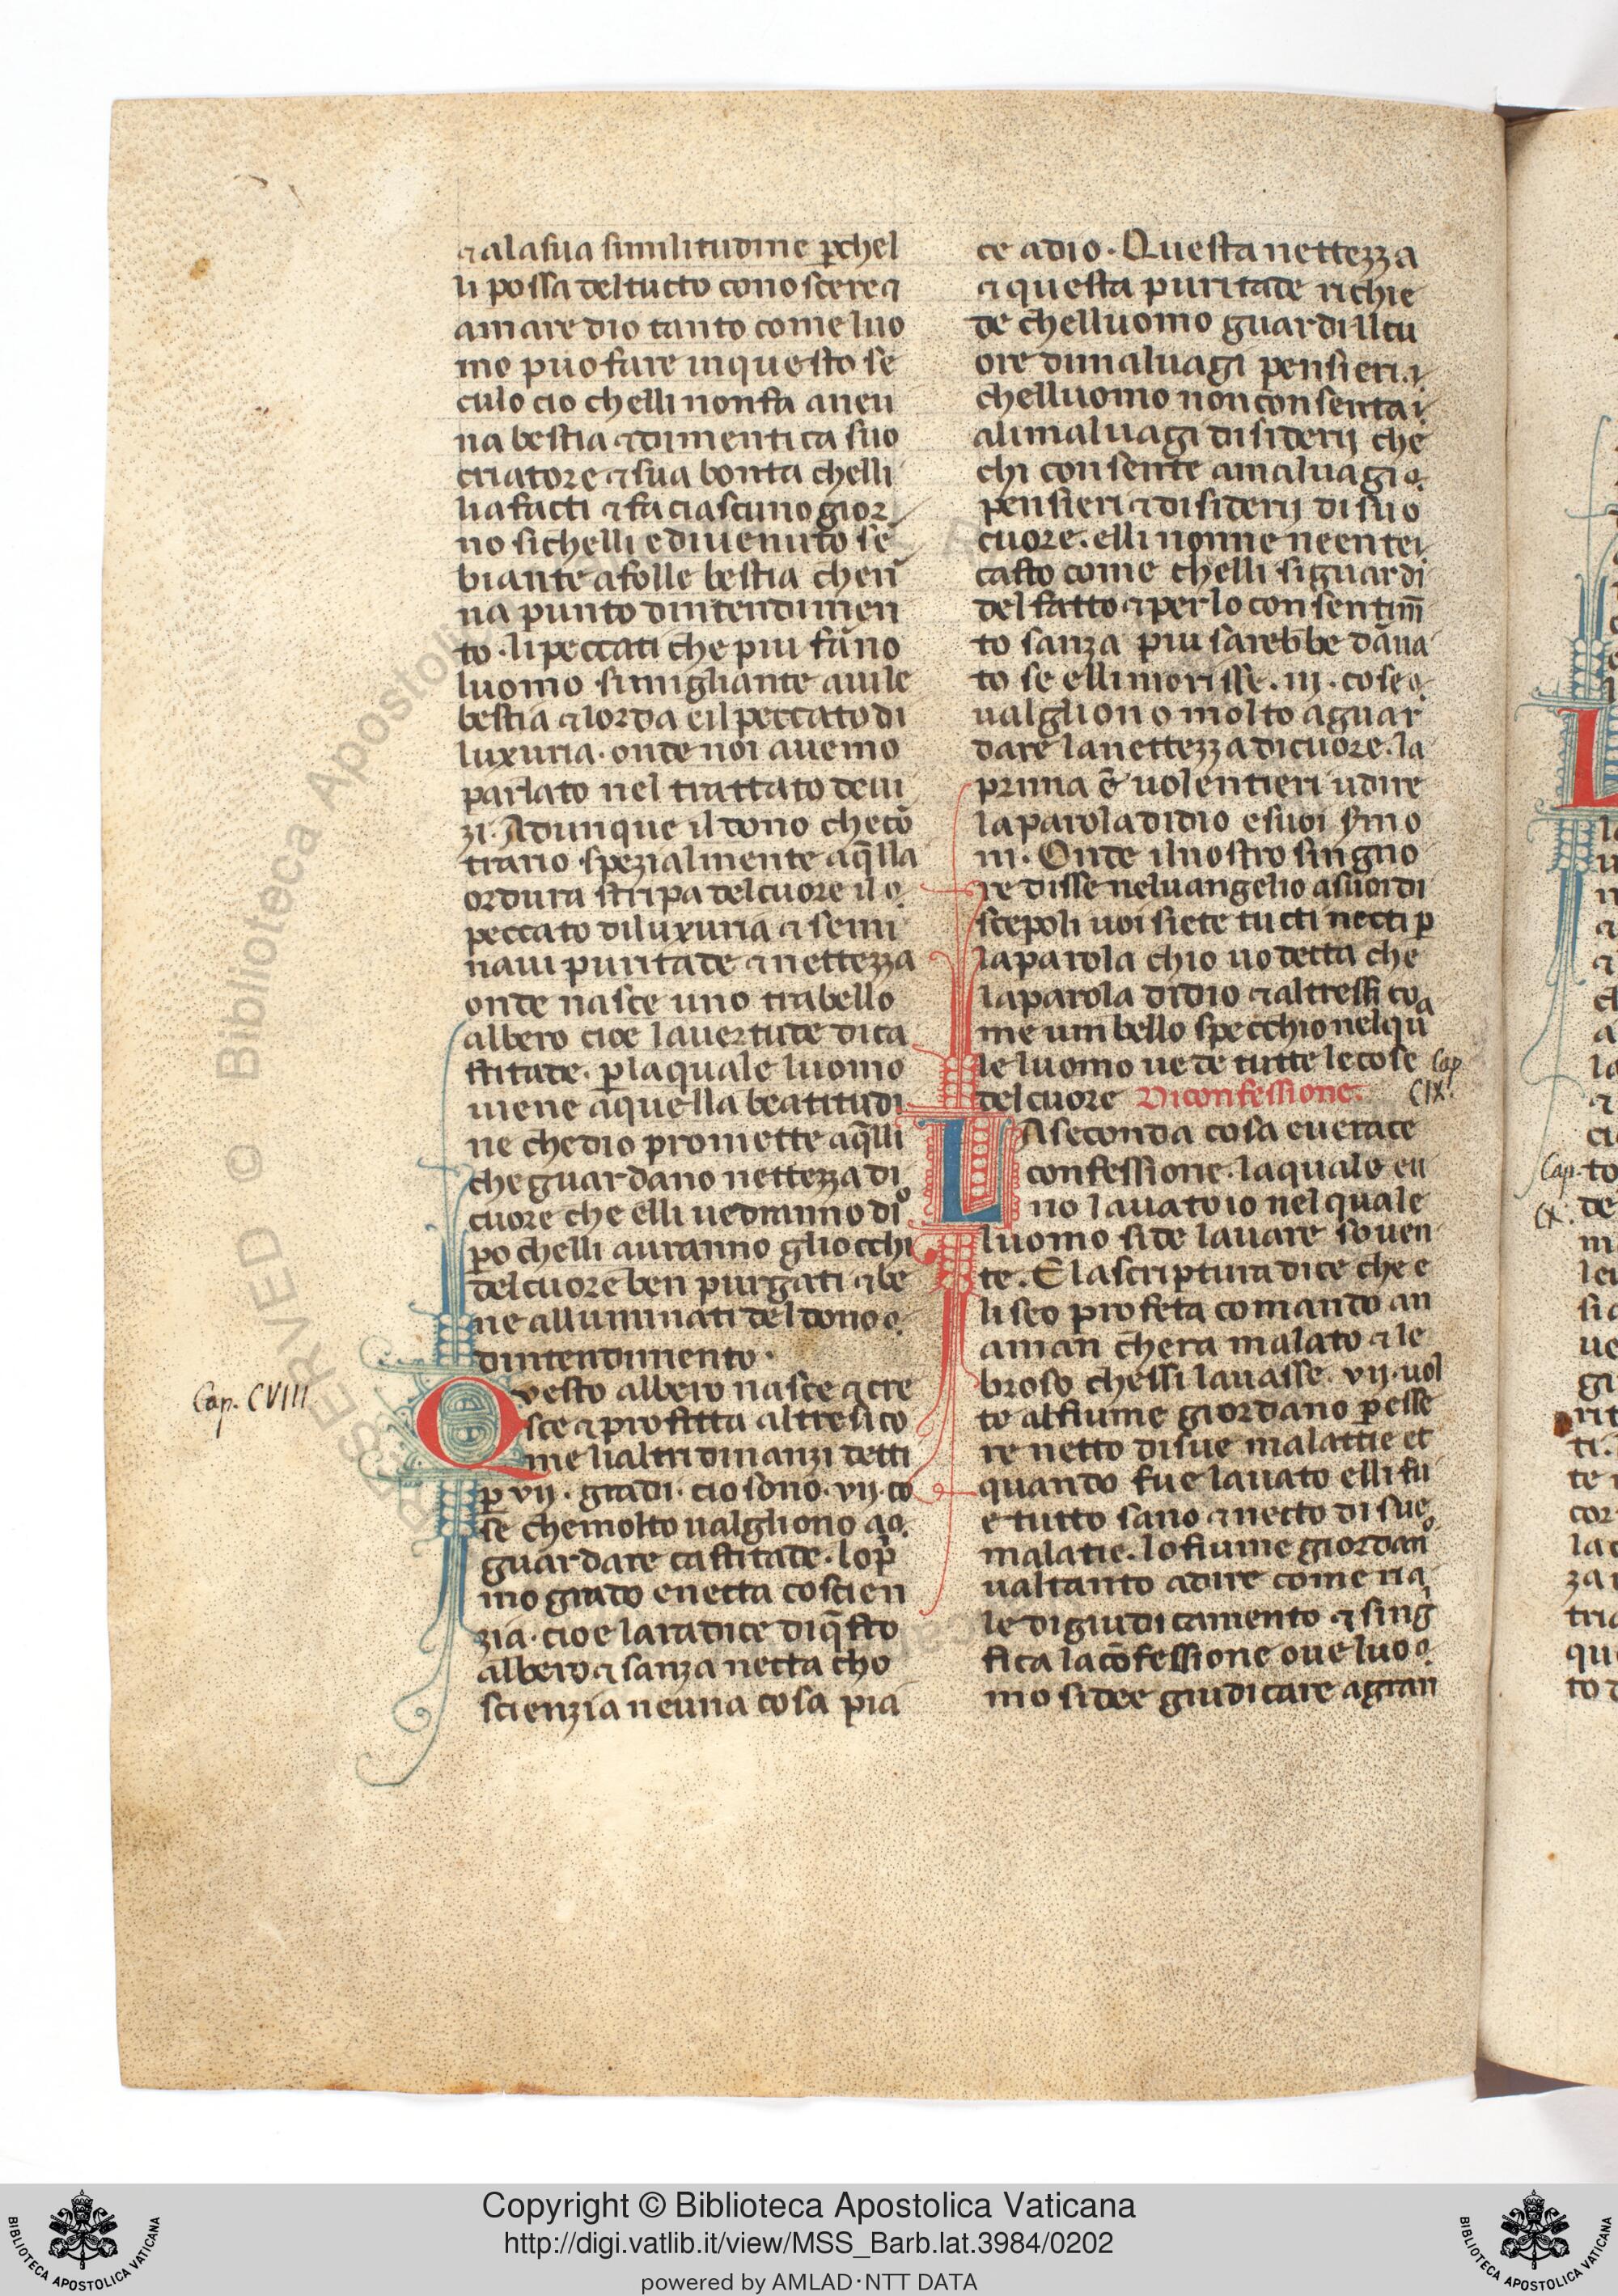 ⁊ alasua similitudine ꝑchel
li possa deltucto conoscere ⁊
amare dio tanto come luo
mo puo fare inquesto se
culo cio chelli non fa aneu
na bestia ⁊ dimentica suo
criatore ⁊ sua bonta chelli
lia facti ⁊ fa ciascuno gior
no sichelli e diuenuto se
biante afolle bestia che n̄
na punto dintendimen
to · li peccati che piu fāno
luomo simigliante auile
bestia ⁊ lorda e il peccato di
luxuria · onde noi auemo
parlato nel trattato deui
zi. Adunque il dono checō
trario spezialmente aq̄lla
ordura stripa delcuore il
peccato di luxuria ⁊ semi
naui puritade ⁊ nettezza
onde nasce uno trabello
albero cioe lauertude dica
stitade. ꝑ laquale luomo
uiene aquella beatitudi
ne chedio promette aq̄lli
che guardano nettezza di
cuore che elli uedranno dio
ꝑo chelli auranno gliocchi
delcuore ben purgati ⁊ be
ne alluminati del dono
dintendimento ·
Cap. CVIII.
Questo albero nasce ⁊ cre
sce ⁊ profitta altresi co
me lialtri dinanzi detti
ꝑ vij · gradi · cio sono · vij · co
se chemolto ualgliono a
guardare castitade · lop̄
mo grado e netta coscien
zia · cioe laradice diq̄sto
albero ⁊ sanza netta cho
scienzia neuna cosa pia
ce adio · Questa nettezza
⁊ questa puritade richie
de chelluomo guardi ilcu
ore dimaluagi pensieri ·
chelluomo non consenta
alimaluagi disiderij che
chi consente amaluagi
pensieri ⁊ disiderij di suo
cuore. elli nonne neente
casto come chelli si guardi
del fatto ⁊ per lo consentim̄
to sanza piu sarebbe dāna
to se elli morisse. iij · cose
ualgliono molto aguar
dare lanettezza dicuore. la
prima ē uolentieri udire
laparola didio e suoi s̄mo
ni · Onde il nostro singno
re disse neluangelio asuoi di
scepoli uoi siete tucti necti ꝑ
laparola chio uo detta che
laparola didio ⁊ altressi co
me um bello specchio nelqua
le luomo uede tutte le cose
del cuore Di confessione.
Cap
CIX.
LA seconda cosa euerace
confessione. laquale eu
no lauatoio nel quale
luomo side lauare souen
te. E la scriptura dice che e
liseo profeta comando an
aman chera malato ⁊ le
broso chessi lauasse. vij · uol
te alfiume giordano ꝑ esse
re netto di sue malattie et
quando fue lauato elli fu
e tutto sano ⁊ necto di sue
malatie. lo fiume giordano
ual tanto adire come ria
le di giudicamento ⁊ singni
fica lacōfessione oue luo
mo sidee giudicare a gran
Cap.
CX.
Copyright © Biblioteca Apostolica Vaticana
http://digi.vatlib.it/view/MSS_Barb.lat.3984/0202
powered by AMLAD·NTT DATA
BIBLIOTECA APOSTOLICA VATICANA
BIBLIOTECA APOSTOLICA VATICANA